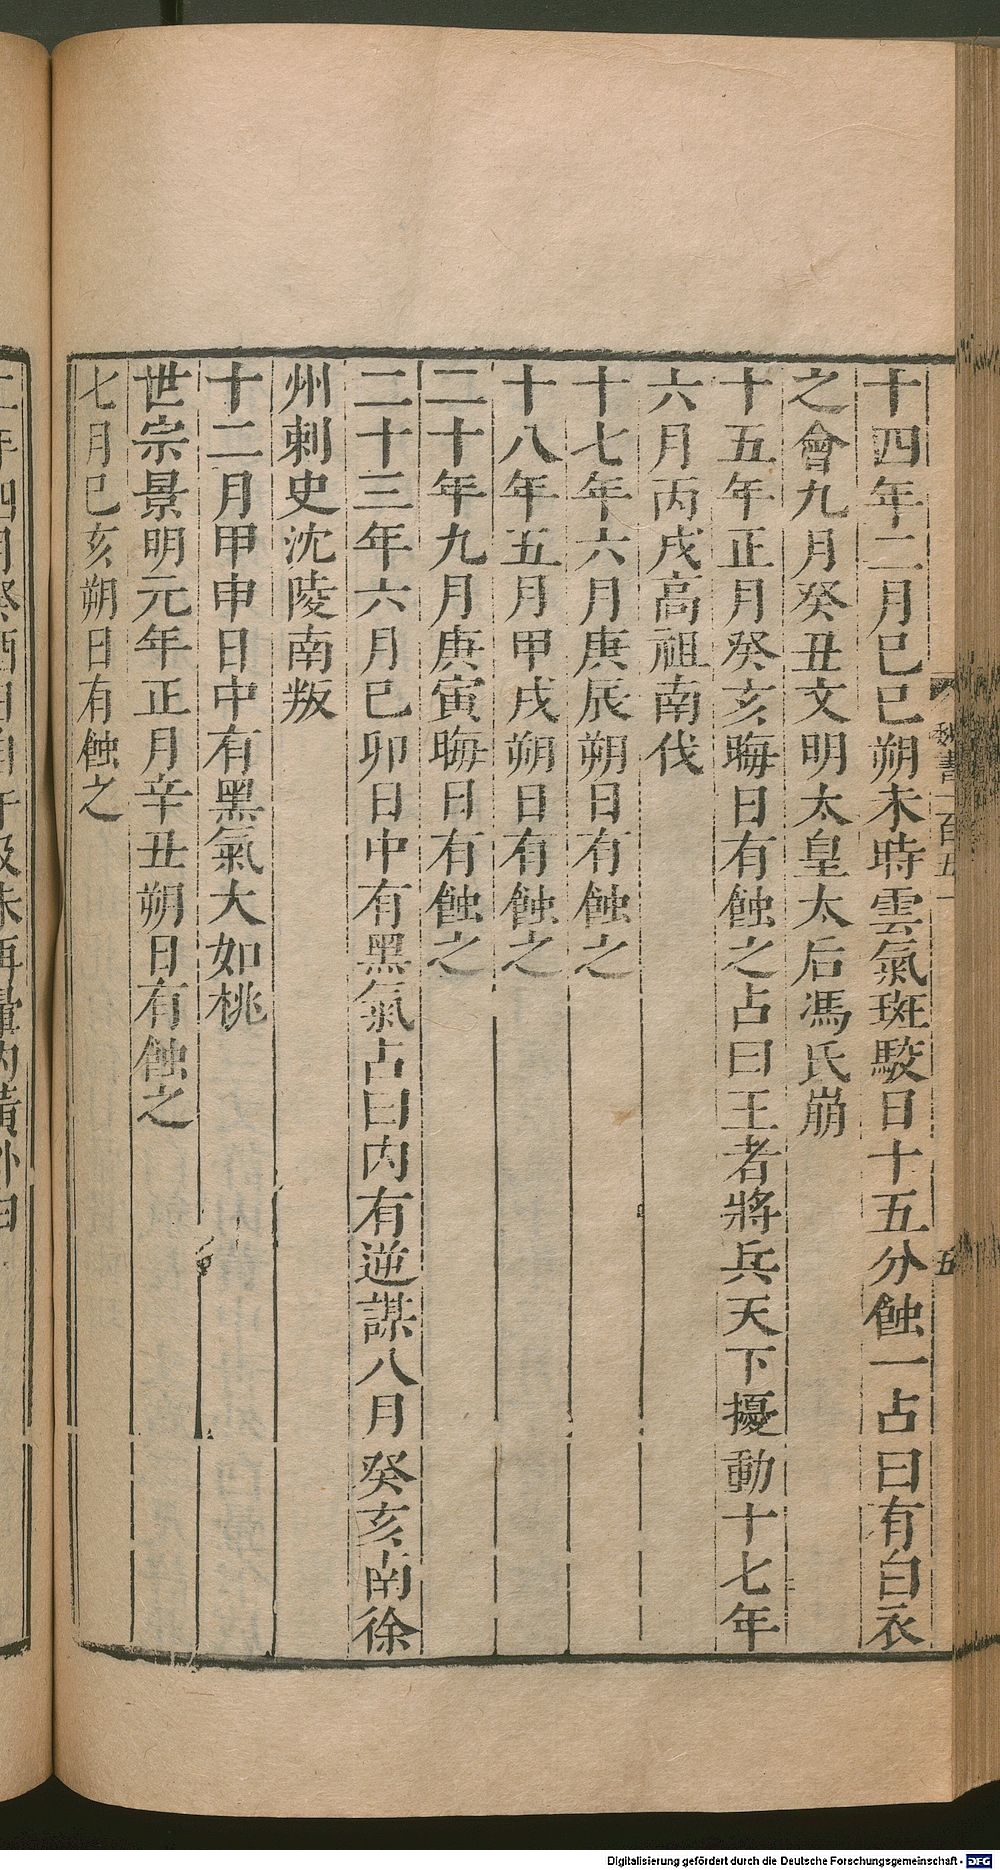 十四年二月巳巳朔未時雲氣斑駮日十五分蝕一占曰有白衣
之會九月癸丑文明太皇太后馮氏崩
十五年正月癸亥晦日有蝕之占曰王者將兵天下擾動十七年
六月丙戌高祖南伐
十七年六月庚辰朔日有蝕之
十八年五月甲戌朔日有蝕之
二十年九月庚寅晦日有蝕之
二十三年六月巳卯日中有黑氣占曰內有逆謀八月癸亥南徐
州刺史沈陵南叛
十二月甲申日中有黑氣大如桃
世宗景明元年正月辛丑朔日有蝕之
七月巳亥朔日有蝕之
Digitalisierung gefördert durch die Deutsche Forschungsgemeinschaft - DFG